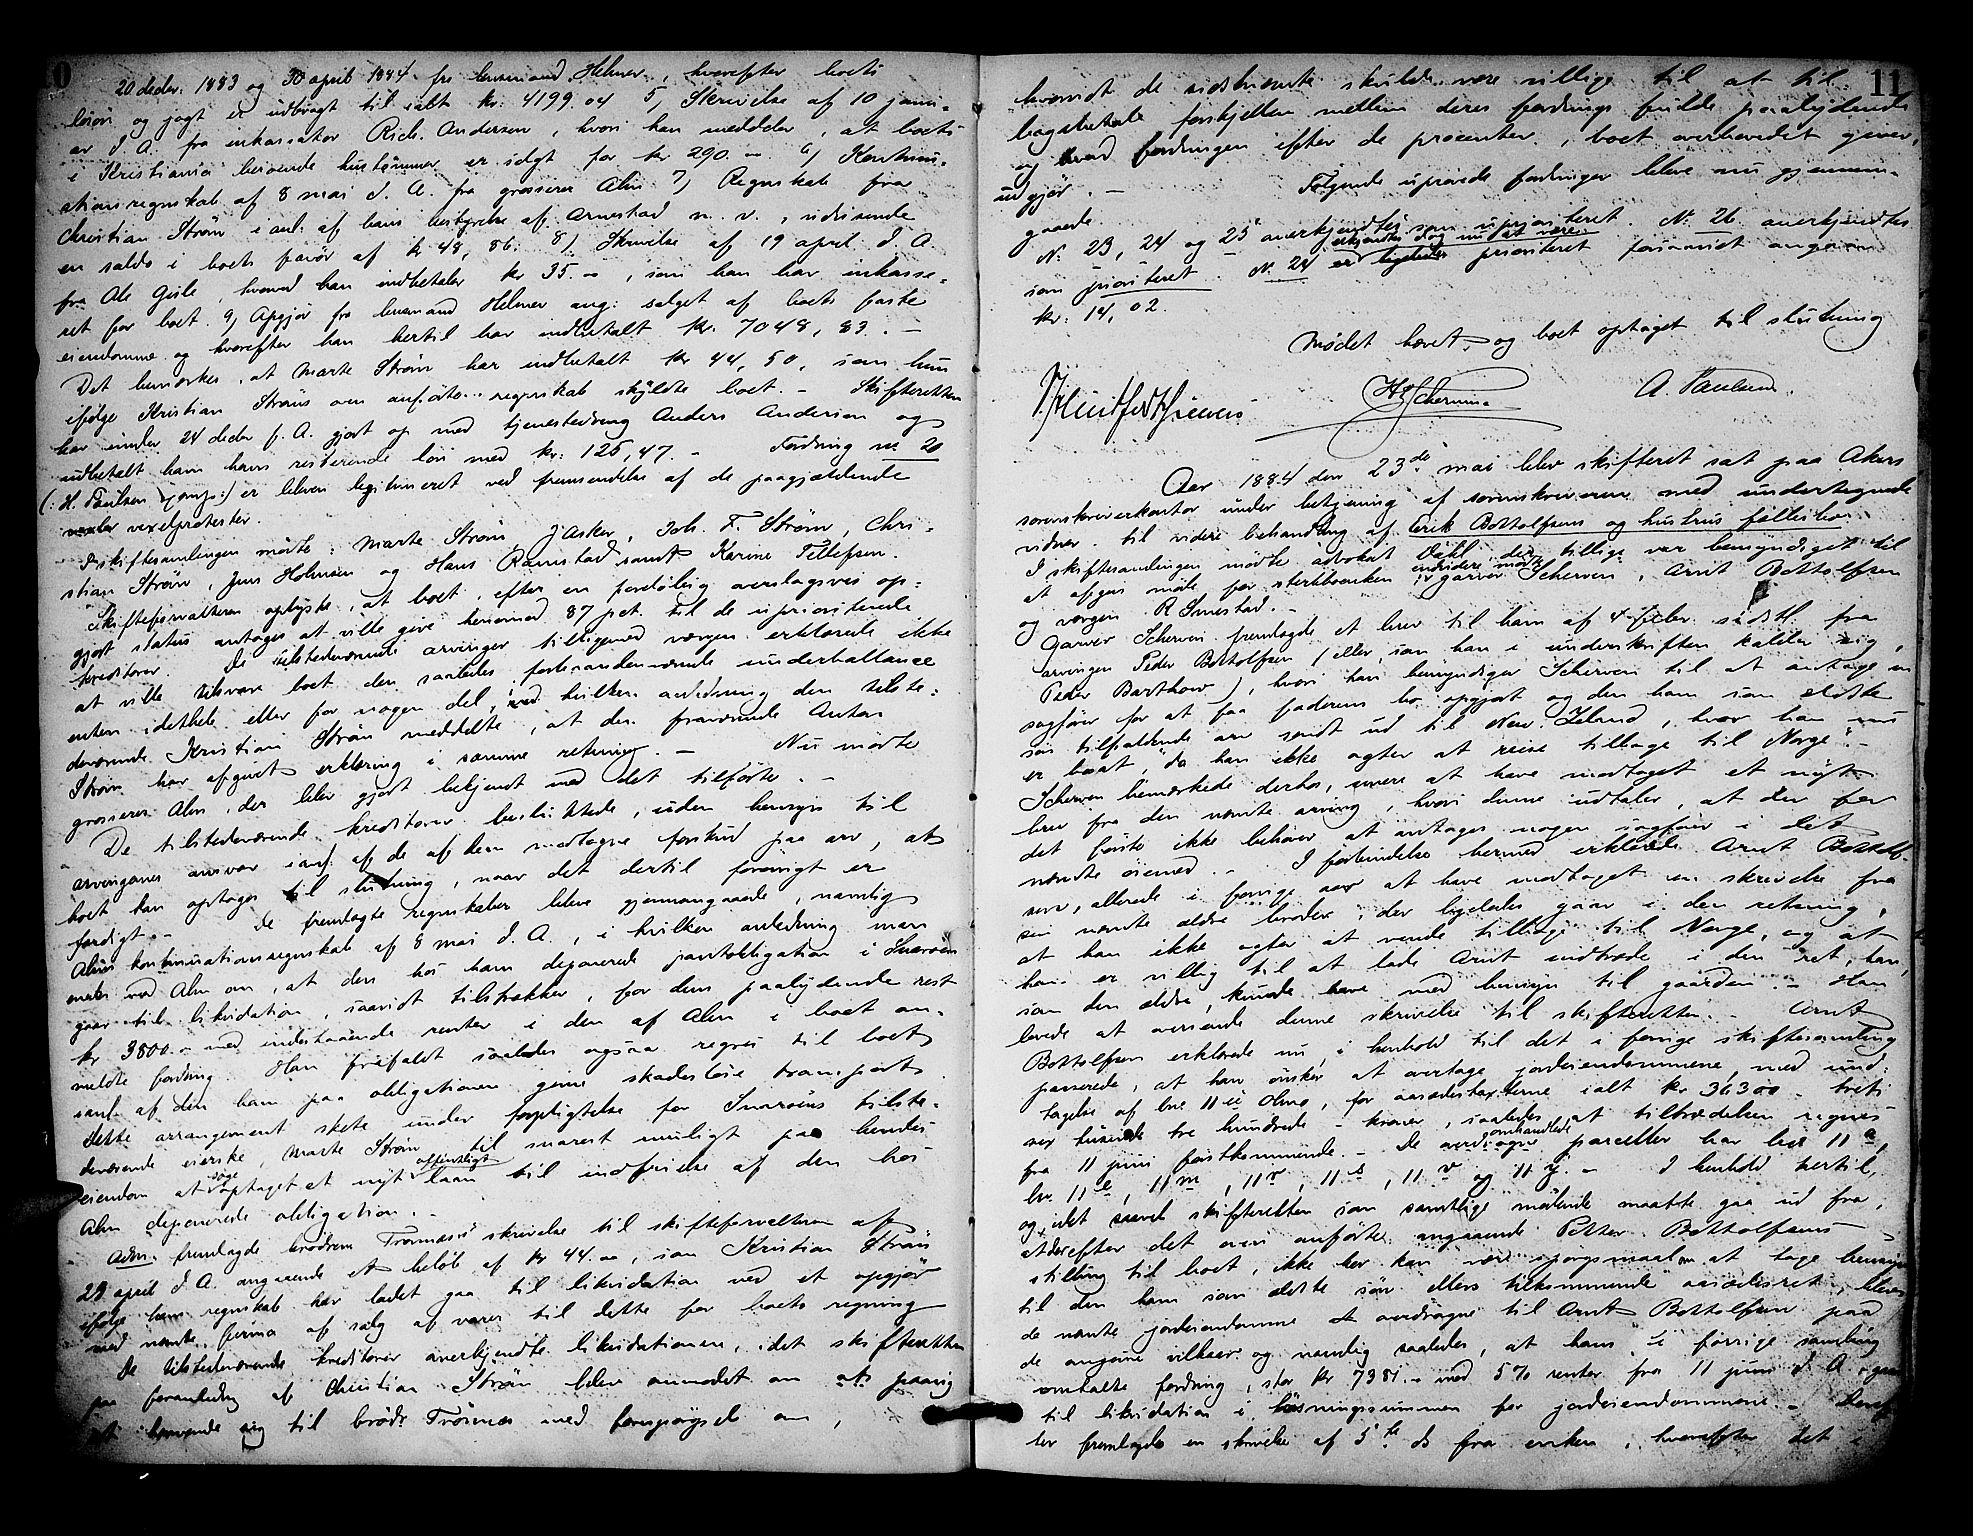 0
20 decbr. 1883 og 30 april 1884 fra lensmand Helmer, hvorefter boets
løsøre og jagt er udbragt til ialt kr. 4199.04 5) Skrivelse af 10 janu-
ar d. A. fra inkassator Rich. Andersen, hvori han meddeler, at boets
i Kristiania beroende hustømmer er solgt for kr 290.- 6) Kontinu-
ationsregnskab af 8 mai d. A. fra grosserer Alm 7) Regnskab fra
Christian Strøm i anl. af hans bestyrelse af Arnestad m. v., udvisende
en saldo i boets favør af kr 48,86. 8) Skrivelse af 19 april d. A.
fra Ole Gisle, hvorved han indbetaler kr 35.-, som han har inkasse-
ret for boet. 9) Opgjør fra lensmand Helmer ang: salget af boets faste
eiendomme og hvorefter han hertil har indbetalt kr. 7048,83. -
Det bemærkes, at Marte Strøm har indbetalt kr 44,50, som hun
ifølge Kristian Strøms oven anførte regnskab skyldte boet. - Skifteretten
har under 24 decbr f. A. gjort op med tjenestedreng Anders Andersen og
udbetalt ham hans resterende løn med kr: 125,47. - Fordring No 20
(: H. Paulsen & comp:) er bleven legitimeret ved fremsendelse af de paagjældende
vexelprotester.
I skiftesamlingen mødte: Marte Strøm, J Asker, Joh. F. Strøm, Chri-
stian Strøm, Jens Holmsen og Hans Ramstad samt Karine Tellefsen.
Skifteforvalteren oplyste, at boet, efter en foreløbig overslagsvis op-
gjort status antages at ville give henimod 87 pct. til de uprioriterede
kreditorer. De tilstedeværende arvinger tilligemed værgen erklærede ikke
at ville tilsvare boet den saaledes forhaandenværende underballance
enten idethele eller for nogen del, i hvilken anledning den tilste-
deværende Kristian Strøm meddelte, at den fraværende Anton
Strøm har afgivet erklæring i samme retning. - Nu mødte
grosserer Alm, der blev gjort bekjendt med det tilførte. -
De tilstedeværende kreditorer besluttede, uden hensyn til
arvingernes ansvar i anl. af de af dem modtagne forskud paa arv, at
boet kan optages til slutning, naar det dertil forøvrigt er
færdigt. - De fremlagte regnskaber bleve gjennemgaaede, navnlig
Alms kontinuationsregnskab af 8 mai d. A., i hvilken anledning man
enedes med Alm om, at den hos ham deponerede pantobligation i Snarøen
gaar til likvidation, saavidt tilstrækker, for dens paalydende rest
kr 3800.- med indestaaende renter i den af Alm i boet an-
meldte fordring. Han frafaldt saaledes ogsaa regres til boet
samt af den ham paa obligationen givne skadesløse transport.
Dette arrangement skete under forpligtelse for Snarøens tilste-
deværende eierske, Marte Strøm til snarest muligt paa hendes
eiendom at søge optaget et nyt offentligt laan til indfrielse af den hos
Alm deponerede obligation. -
Adv. fremlagde brødrene Trømnes's skrivelse til skifteforvalteren af
29 april d. A. angaaende et beløb af kr 44.00, som Kristian Strøm
ifølge hans regnskab har ladet gaa til likvidation ved et opgjør
med nævnte firma af salg af varer til dette for boets regning
De tilstedeværende kreditorer anerkjendte likvidationen, idet skifteretten
paa foranledning af Christian Strøm blev anmodet om at paany
at henvende sig til brødr Trømnes med forespørgsel om,
11
hvorvidt de sidstnævnte skulde være villige til at til-
bagebetale forskjellen mellem deres fordrings fulde paalydende
og hvad fordringen efter de procenter, boet overhovedet giver,
udgjør. - Følgende uprøvede fordringer bleve nu gjennem-
gaaede.
No. 23, 24 og 25 anerkjendtes som uprioriteret. No. 26 anerkjendtes
som prioriteret. No. 24 erkjendtes dog nu at være er ligeledes prioriteret forsaavidt angaar
kr. 14,02.
Mødet hævet og boet optaget til slutning
H Scherven A. Paulsen.
Aar 1884 den 23de mai blev skifteret sat paa Akers
sorenskriverkontor under betjening af sorenskriveren med undertegnede
vidner til videre behandling af Erik Bottolfsens og hustrus fællesbo
I skiftesamlingen mødte advokat Dahl, der tillige var bemyndiget til
at afgive møde for styrtebanken, endvidere mødte garver Scherven, Arnt Bottolfsen
og værgen R Smestad. -
Garver Scherven fremlagde et brev til ham af 4 febr. sidstl. fra
arvingen Peder Bottolfsen (eller, som han i underskriften kalder sig,
Peder Barthow), hvori han bemyndiger Scherven til at antage en
sagfører for at faa faderens bo opgjort og den ham som ældste
søn tilfaldende arv sendt ud til New Zeland, hvor han nu
er bosat, "da han ikke agter at reise tilbage til Norge". -
Scherven bemærkede derhos, senere at have modtaget et nyt
brev fra den nævnte arving, hvori denne udtaler, at der for
det første ikke behøver at antages nogen sagfører i det
nævnte øiemed. - I forbindelse hermed erklærede Arnt Bottolf-
sen, allerede i forrige aar at have modtaget en skrivelse fra
sin nævnte ældre broder, der ligeledes gaar i den retning,
at han ikke agter at vende tilbage til Norge, og at
han er villig til at lade Arnt indtræde i den ret, han,
som den ældre, kunde have med hensyn til gaarden. - Han
lovede at oversende denne skrivelse til skifteretten. - Arnt
Bottolfsen erklærede nu, i henhold til det i forrige skiftesamling
passerede, at han ønsker at overtage jordeiendommene, med und-
tagelse af bno 11 ii Olmo, for aasædestaxterne ialt kr 36300 - treti
sex tusinde tre hundrede - kroner, saaledes, at tiltrædelsen regnes
fra 11 juni førstkommende. - De omhandlede parceller har bno 11 a,
bno 11 e, 11 m, 11 r, 11 s, 11 v og 11 y. - I henhold hertil,
og idet saavel skifteretten som samtlige mødende maatte gaa ud fra,
at derefter det oven anførte angaaende Petter Bottolfsens
stilling til boet, ikke her kan være spørgsmaal om at tage hensyn
til den ham som ældste søn ellers tilkommende aasædesret, bleve
de nævnte jordeiendomme at overdrages til Arnt Bottolfsen paa
de angivne vilkaar og navnlig saaledes, at hans i forrige samling
omtalte fordring, stor kr 7381.- med 5% renter fra 11 juni d. A. gaar
til likvidation i løsningssummen for jordeiendommene. - Deref-
ter fremlagdes en skrivelse af 5te ds fra enken, hvorefter det i